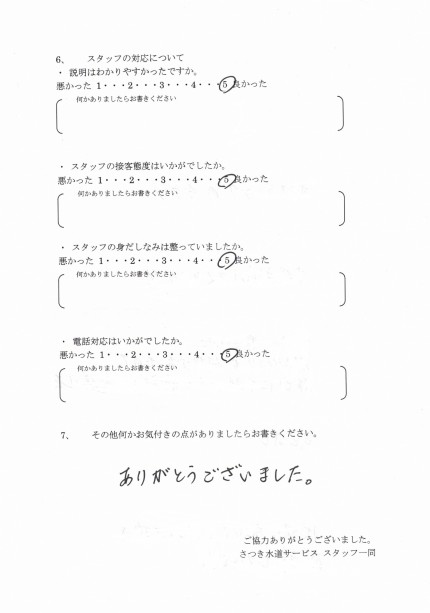 6、 スタッフの対応について
・ 説明はわかりやすかったですか。
悪かった 1・・・2・・・3・・・4・・・5 良かった
何かありましたらお書きください
・ スタッフの接客態度はいかがでしたか。
悪かった 1・・・2・・・3・・・4・・・5 良かった
何かありましたらお書きください
・ スタッフの身だしなみは整っていましたか。
悪かった 1・・・2・・・3・・・4・・・5 良かった
何かありましたらお書きください
・ 電話対応はいかがでしたか。
悪かった 1・・・2・・・3・・・4・・・5 良かった
何かありましたらお書きください
7、 その他何かお気付きの点がありましたらお書きください。
ありがとうございました。
ご協力ありがとうございました。
さつき水道サービス スタッフ一同